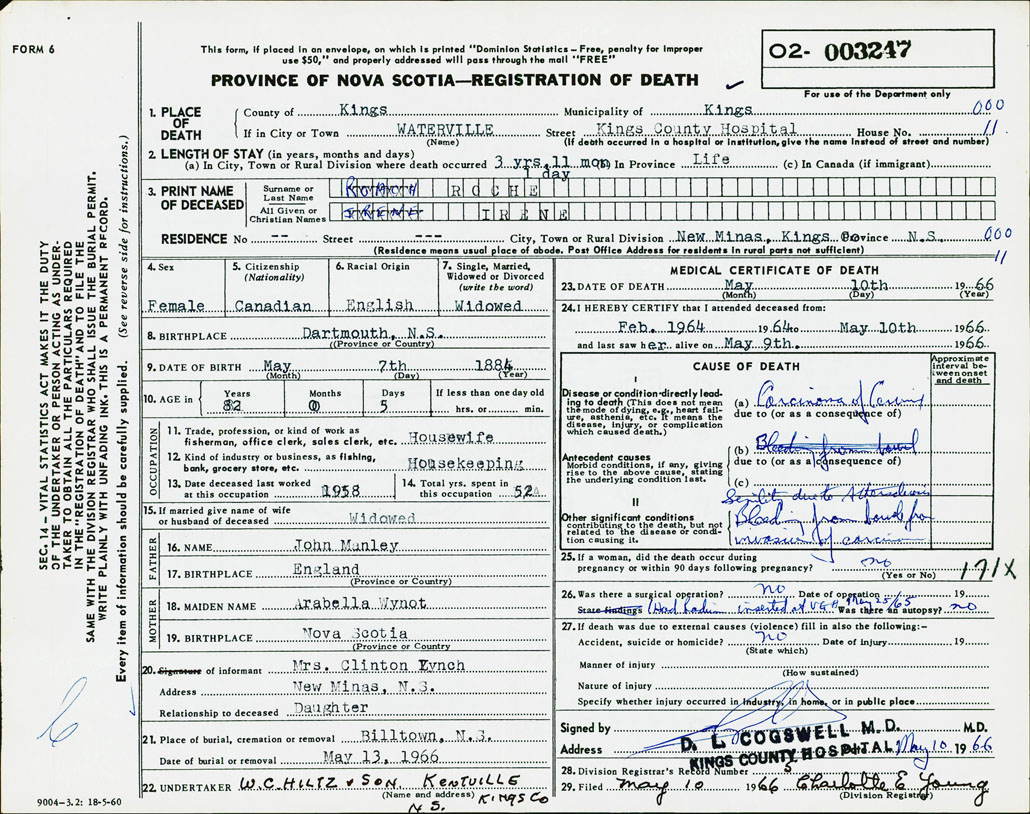 FORM 6
This form, if placed in an envelope, on which is printed "Dominion Statistics – Free, penalty for improper
use $50," and properly addressed will pass through the mail "FREE"
PROVINCE OF NOVA SCOTIA—REGISTRATION OF DEATH
O2- 003247
For use of the Department only
1. PLACE OF DEATH
County of Kings Municipality of Kings 000
If in City or Town WATERVILLE Street Kings County Hospital House No. 11
(Name) (If death occurred in a hospital or institution, give the name instead of street and number)
2. LENGTH OF STAY (in years, months and days)
(a) In City, Town or Rural Division where death occurred 3 yrs. 11 mon (b) In Province Life (c) In Canada (if immigrant)
1 day
3. PRINT NAME OF DECEASED
Surname or Last Name ROCHE
All Given or Christian Names IRENE IRENE
RESIDENCE No -- Street --- City, Town or Rural Division New Minas, Kings Co Province N.S. 000
(Residence means usual place of abode. Post Office Address for residents in rural parts not sufficient) 11
4. Sex Female
5. Citizenship (Nationality) Canadian
6. Racial Origin English
7. Single, Married, Widowed or Divorced (write the word) Widowed
8. BIRTHPLACE Dartmouth, N.S.
(Province or Country)
9. DATE OF BIRTH May 7th 1884
(Month) (Day) (Year)
10. AGE in Years 82 Months 0 Days 5 If less than one day old hrs. or min.
OCCUPATION
11. Trade, profession, or kind of work as
fisherman, office clerk, sales clerk, etc. Housewife
12. Kind of industry or business, as fishing,
bank, grocery store, etc. Housekeeping
13. Date deceased last worked at this occupation 1958
14. Total yrs. spent in this occupation 52
15. If married give name of wife
or husband of deceased Widowed
FATHER
16. NAME John Manley
17. BIRTHPLACE England
(Province or Country)
MOTHER
18. MAIDEN NAME Arabella Wynot
19. BIRTHPLACE Nova Scotia
(Province or Country)
20. Signature of informant Mrs. Clinton Lynch
Address New Minas, N.S.
Relationship to deceased Daughter
21. Place of burial, cremation or removal Billtown, N.S.
Date of burial or removal May 13, 1966
22. UNDERTAKER W.C. HILTZ & SON. KENTVILLE
(Name and address) KINGS CO
N.S.
9004–3.2: 18-5-60
MEDICAL CERTIFICATE OF DEATH
23. DATE OF DEATH May 10th 1966
(Month) (Day) (Year)
24. I HEREBY CERTIFY that I attended deceased from:
Feb. 1964 1964 to May 10th 1966
and last saw her alive on May 9th. 1966
CAUSE OF DEATH
Approximate interval between onset and death
I
Disease or condition directly leading to death (This does not mean the mode of dying, e.g., heart failure, asthenia, etc. It means the disease, injury, or complication which caused death.)
(a) Carcinoma of
due to (or as a consequence of)
Antecedent causes
Morbid conditions, if any, giving rise to the above cause, stating the underlying condition last.
(b) Bleeding from bowel
due to (or as a consequence of)
(c)
Senility due to
II
Other significant conditions
contributing to the death, but not related to the disease or condition causing it.
Bleeding from bowel
invasion of
25. If a woman, did the death occur during
pregnancy or within 90 days following pregnancy? no
(Yes or No) 171X
26. Was there a surgical operation? no Date of operation 19
State findings (Had Radium inserted at V.G.H. May 25/65 Was there an autopsy? no
27. If death was due to external causes (violence) fill in also the following:–
Accident, suicide or homicide? no Date of injury 19
(State which)
Manner of injury
(How sustained)
Nature of injury
Specify whether injury occurred in industry, in home, or in public place
Signed by D. L. COGSWELL M.D. M.D.
Address KINGS COUNTY HOSPITAL Date May 10 1966
28. Division Registrar's Record Number 5
29. Filed May 10 1966 Charlotte E Young
(Division Registrar)
SEC. 14– VITAL STATISTICS ACT MAKES IT THE DUTY
OF THE UNDERTAKER OR PERSON ACTING AS UNDER-
TAKER TO OBTAIN ALL THE PARTICULARS REQUIRED
IN THE "REGISTRATION OF DEATH" AND TO FILE THE
SAME WITH THE DIVISION REGISTRAR WHO SHALL ISSUE THE BURIAL PERMIT.
WRITE PLAINLY WITH UNFADING INK. THIS IS A PERMANENT RECORD.
Every item of information should be carefully supplied. (See reverse side for instructions.)